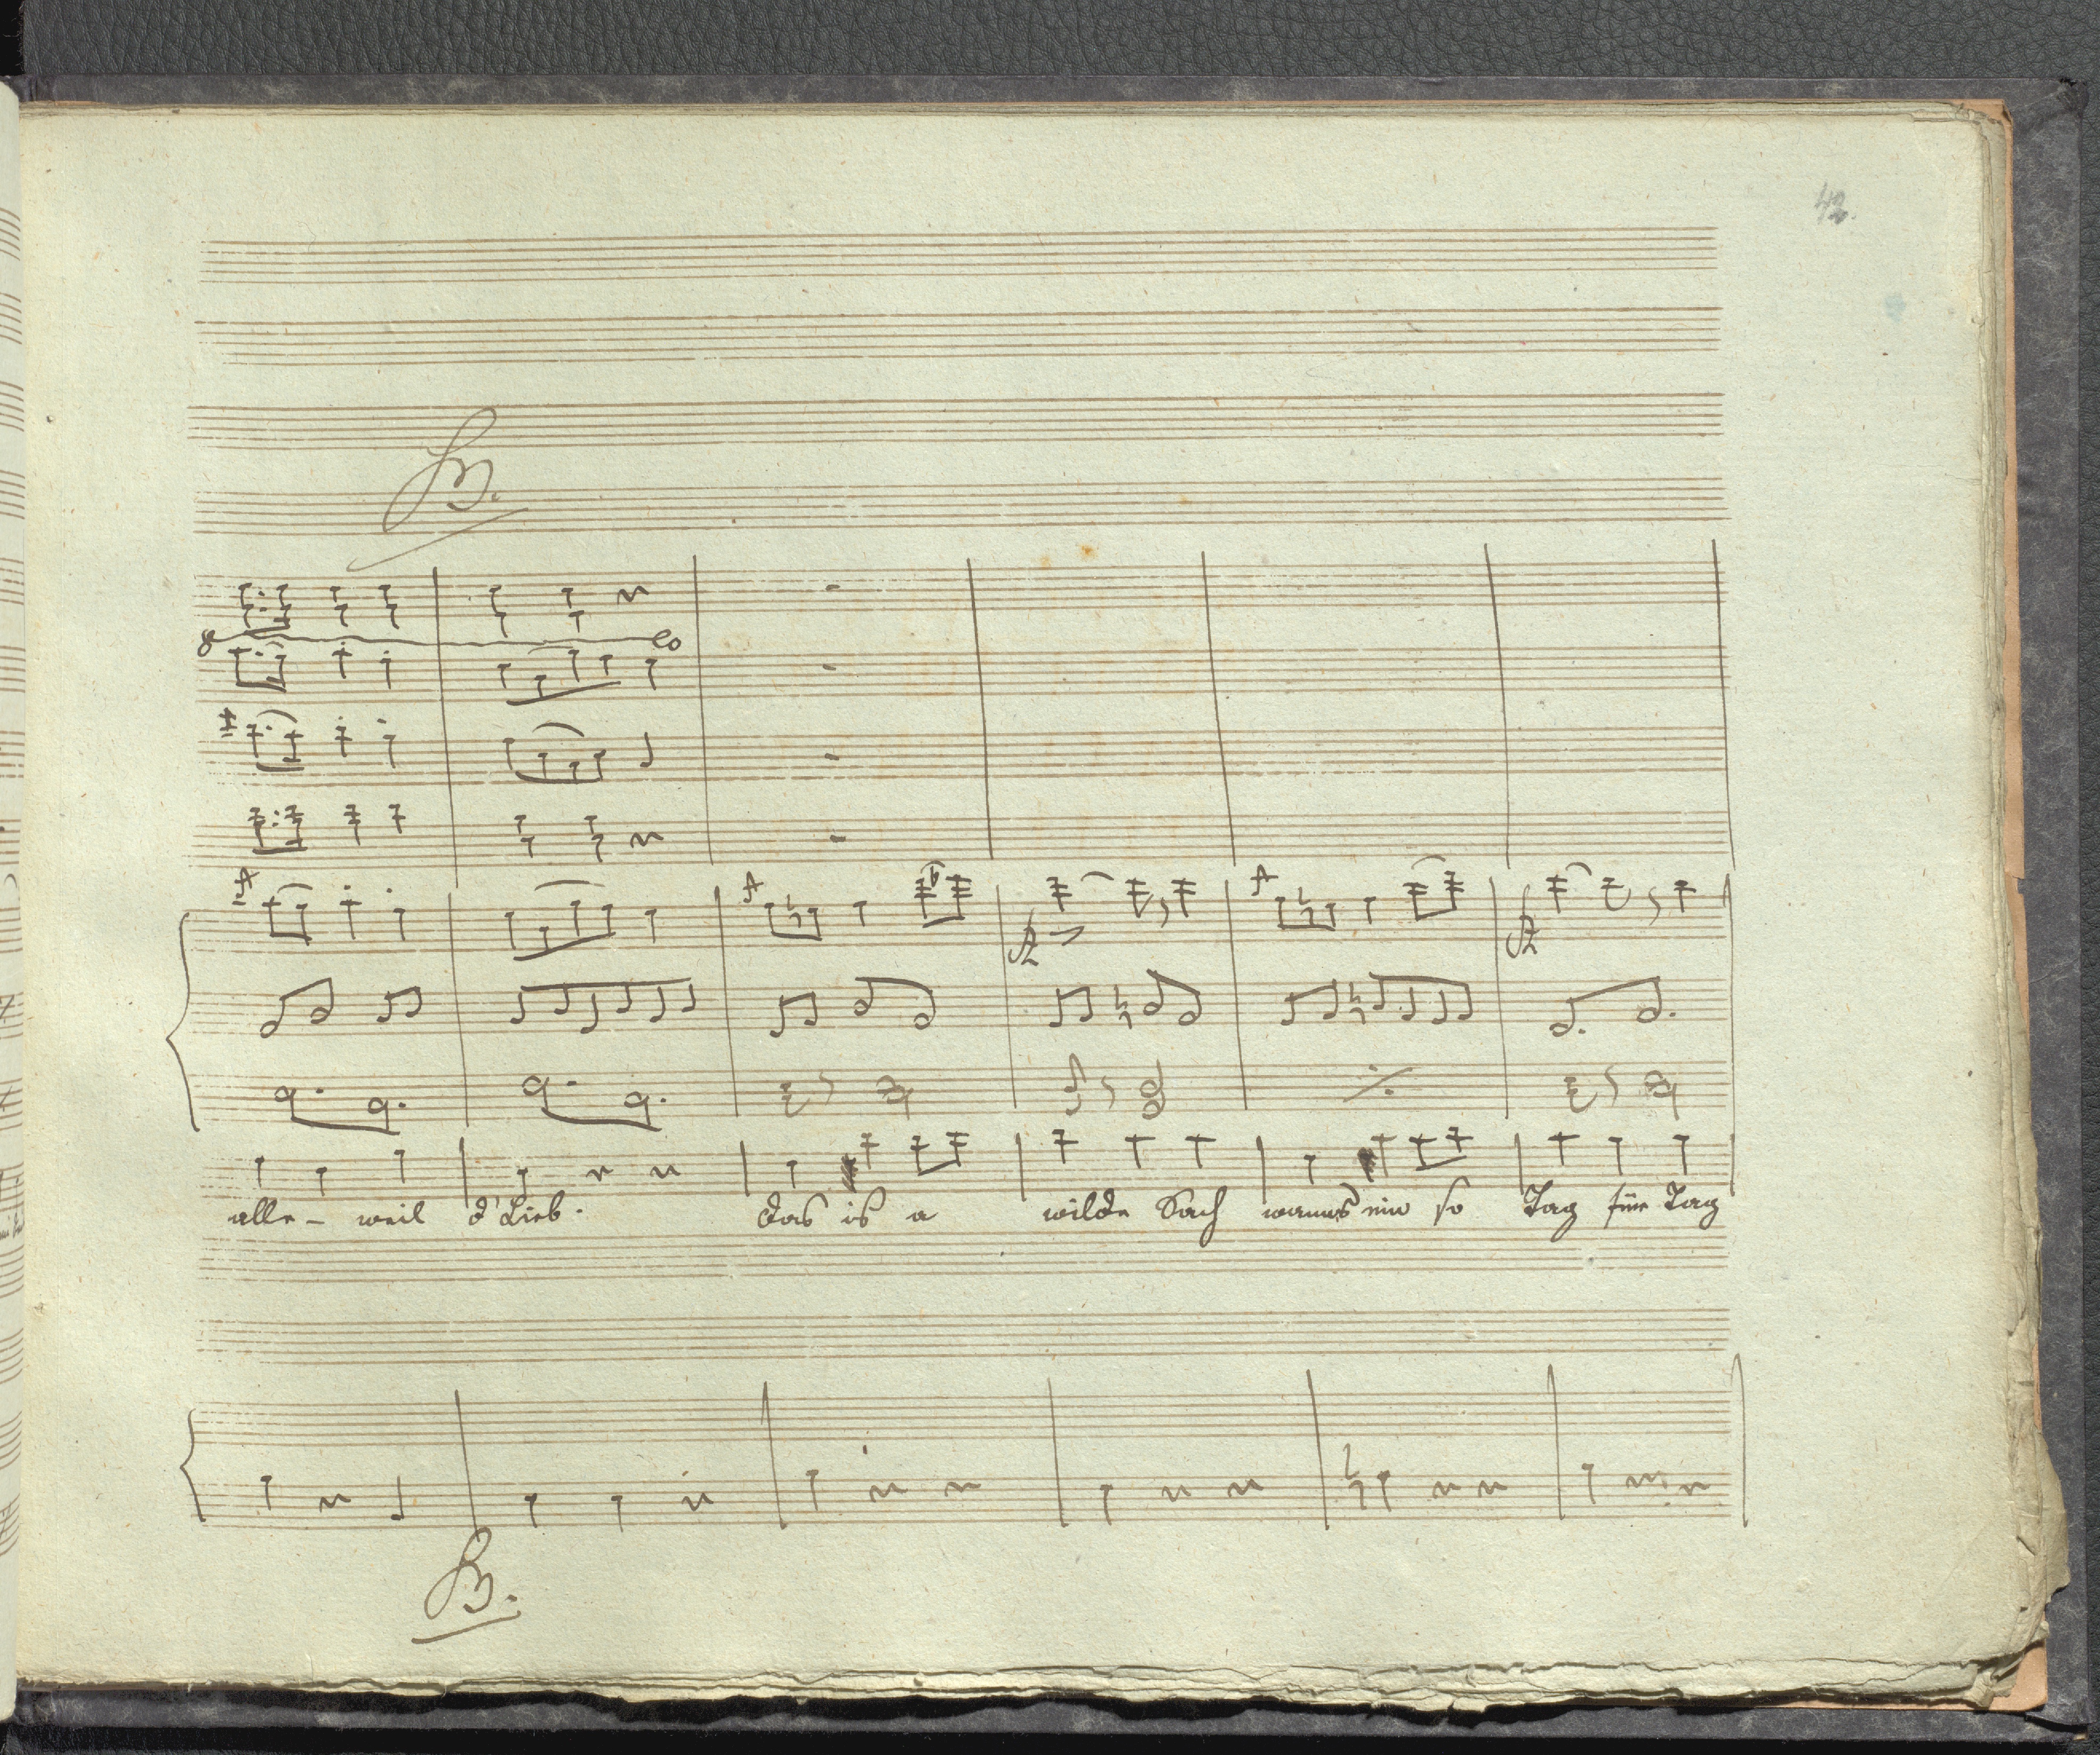 42.
B.
alle - weil d'Lieb. das is a wilde Sach wanns ein so Tag für Tag
B.